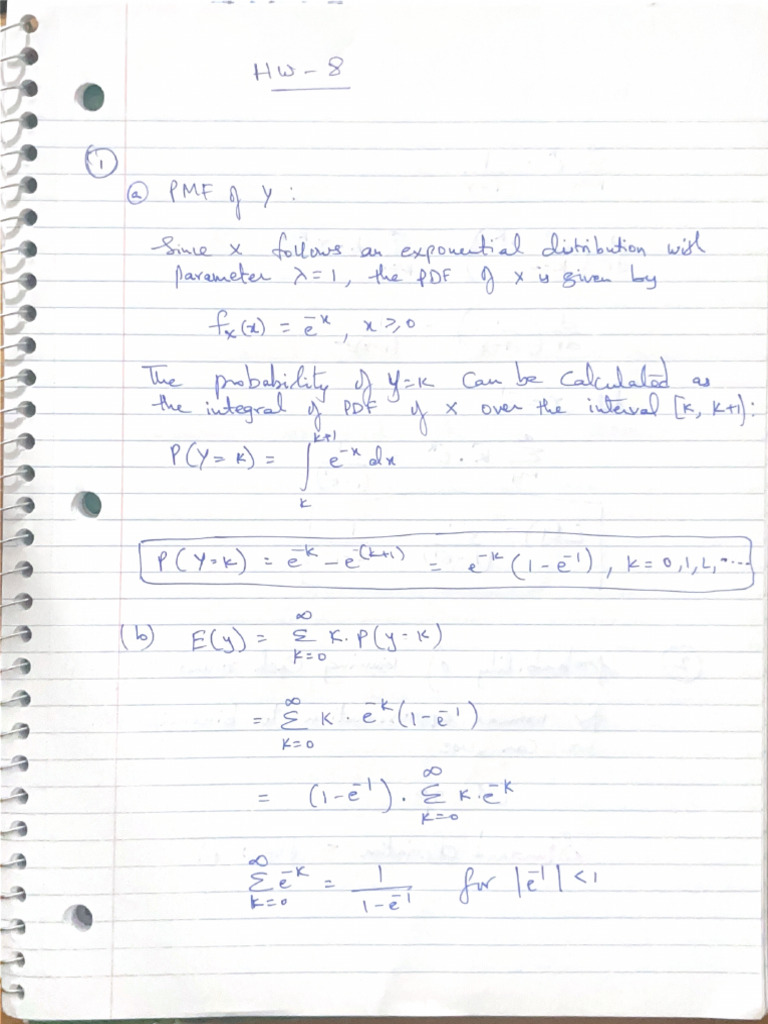 HW - 8
①
ⓐ PMF of Y :
Since X follows an exponential distribution with
parameter λ = 1, the PDF of X is given by
fₓ(x) = e⁻ˣ , x ≥ 0
The probability of Y=K can be calculated as
the integral of PDF of X over the interval [K, K+1):
P(Y=K) = ∫_K^{K+1} e^{-x} dx
P(Y=K) = e^{-K} - e^{-(K+1)} = e^{-K} (1 - e^{-1}) , K = 0, 1, 2, ....
(b) E(y) = Σ_{K=0}^{∞} K · P(y-K)
= Σ_{K=0}^{∞} K · e^{-K} (1 - e^{-1})
= (1 - e^{-1}) · Σ_{K=0}^{∞} K · e^{-K}
Σ_{K=0}^{∞} e^{-K} = 1/(1 - e^{-1}) for |e^{-1}| < 1